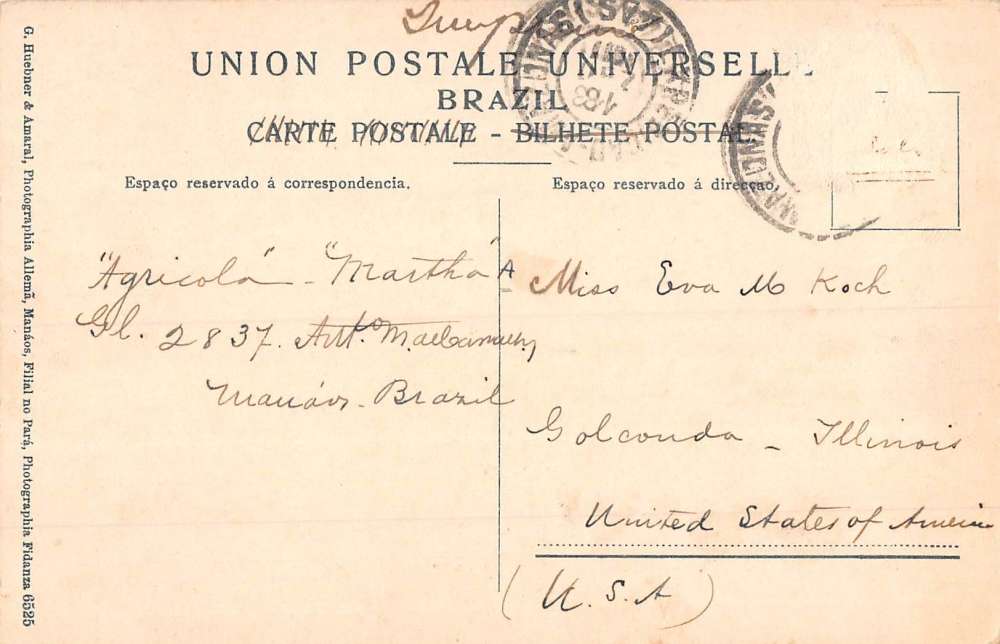 UNION POSTALE UNIVERSELLE
BRAZIL
CARTE POSTALE - BILHETE POSTAL
Espaço reservado á correspondencia.
Espaço reservado á direcção.
"Agricola" - "Martha"
Gl. 2837.
Manáos - Brazil
A Miss Eva M Koch
Golconda - Illinois
United States of America
(U.S.A)
G. Huebner & Amaral, Photographia Allemã, Manáos, Filial no Pará, Photographia Fidanza 6525